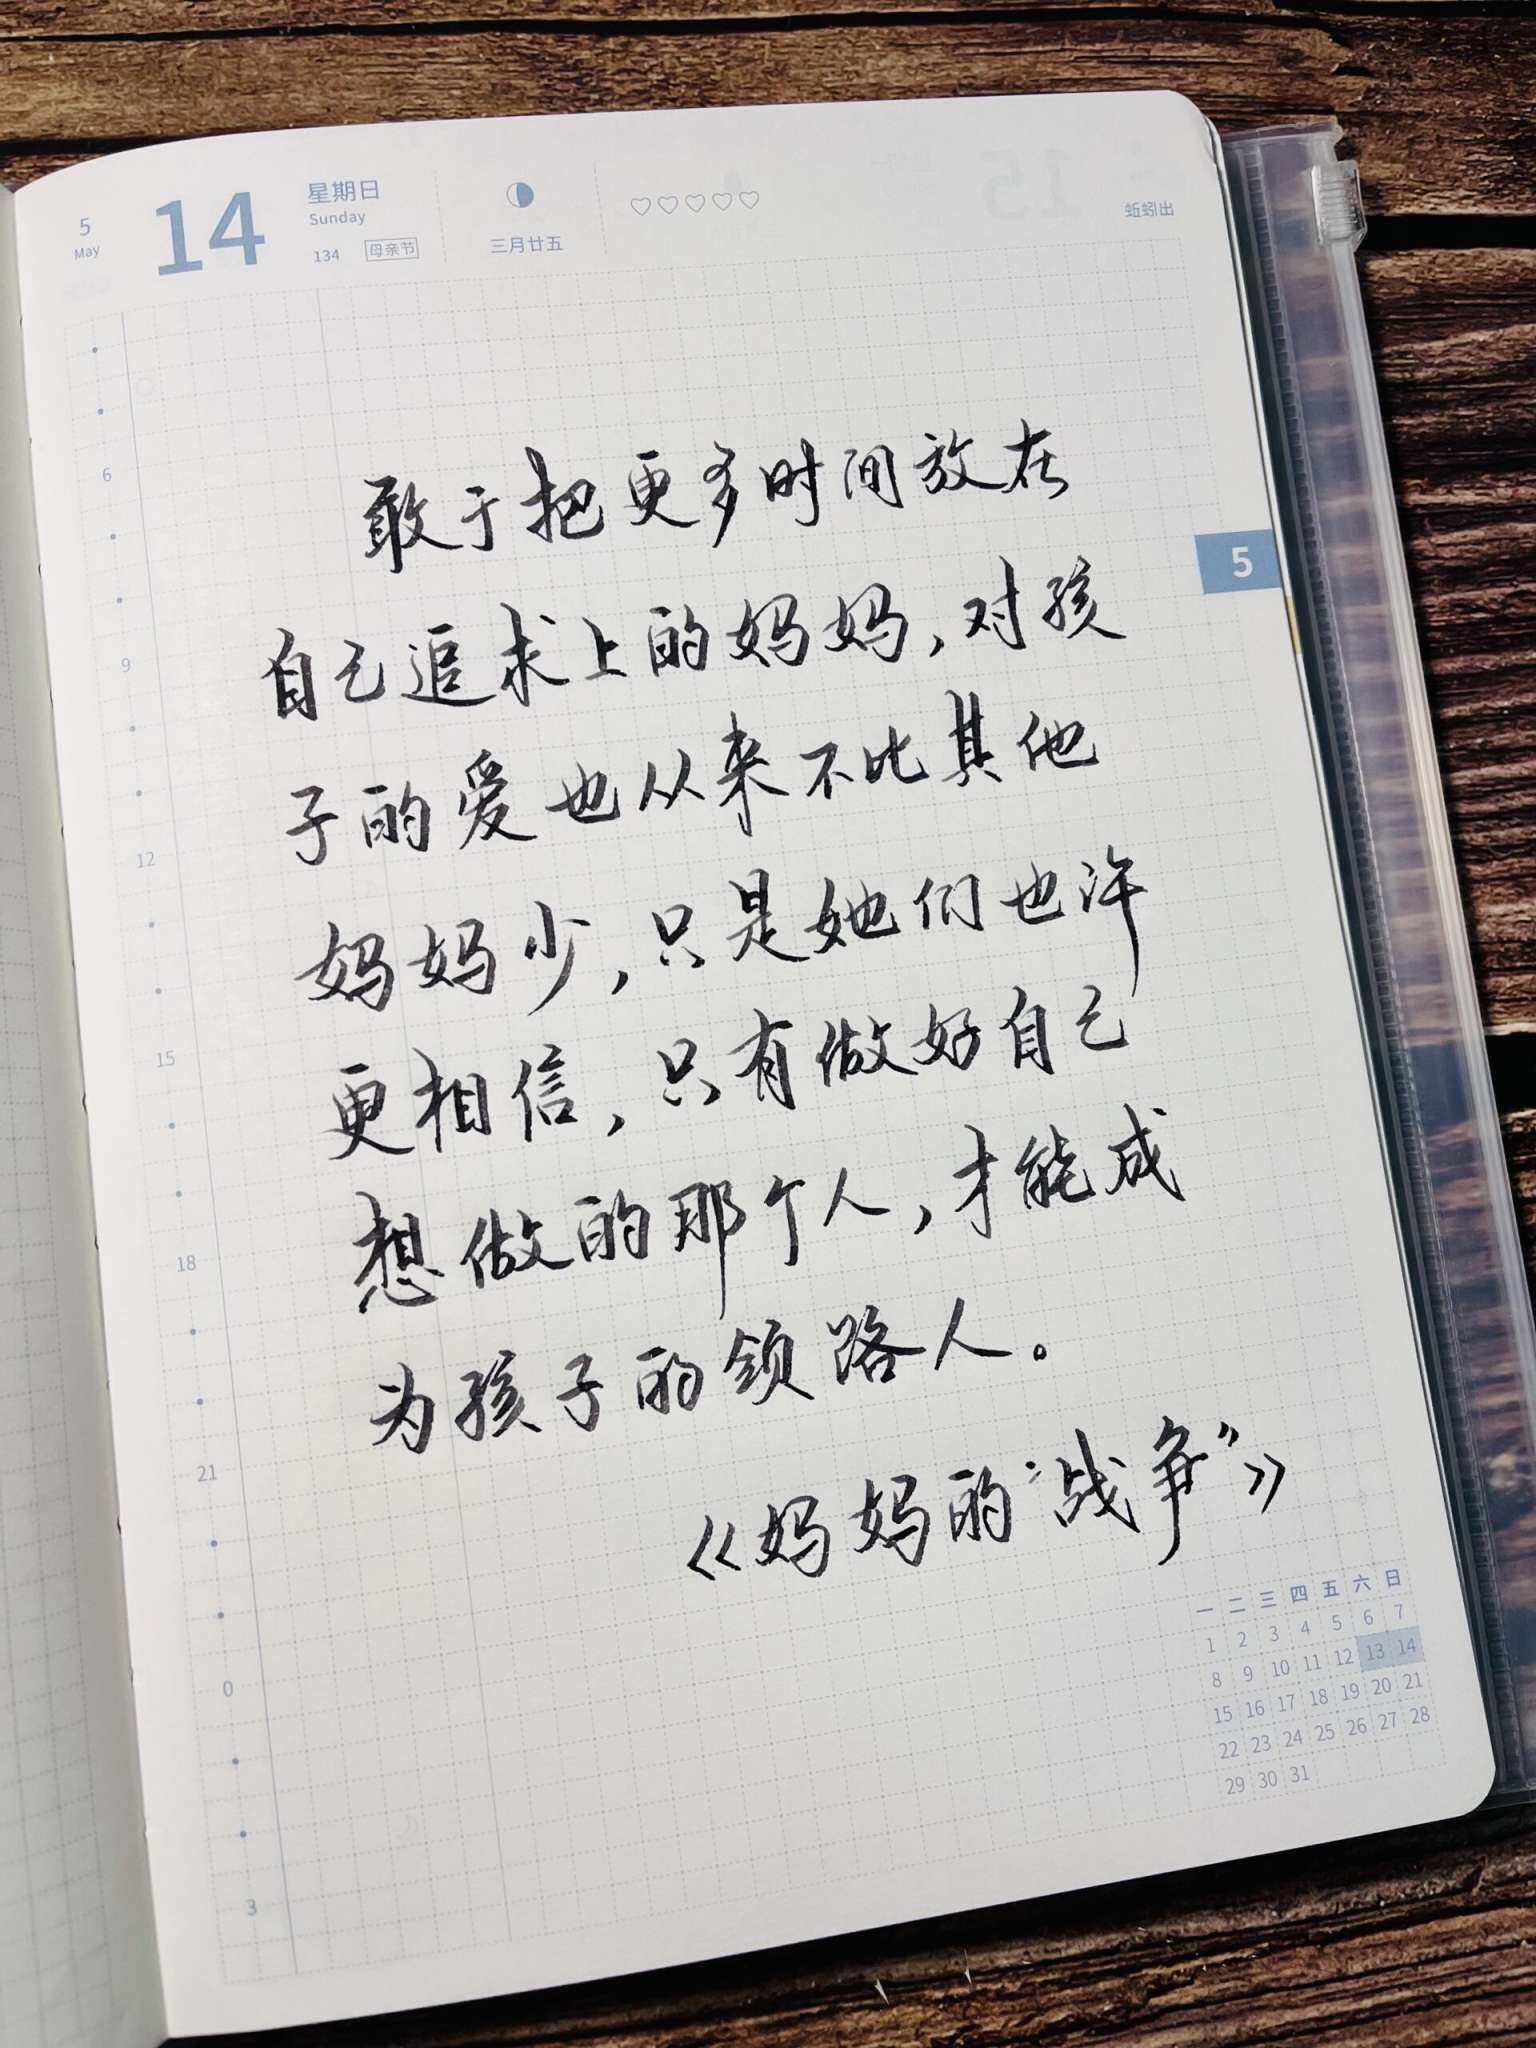 5
May
14
星期日
Sunday
134 母亲节
三月廿五
蚯蚓出
敢于把更多时间放在
自己追求上的妈妈,对孩
子的爱也从来不比其他
妈妈少,只是她们也许
更相信,只有做好自己
想做的那个人,才能成
为孩子的领路人。
《妈妈的“战争”》
5
6
9
12
15
18
21
0
3
一 二 三 四 五 六 日
1 2 3 4 5 6 7
8 9 10 11 12 13 14
15 16 17 18 19 20 21
22 23 24 25 26 27 28
29 30 31